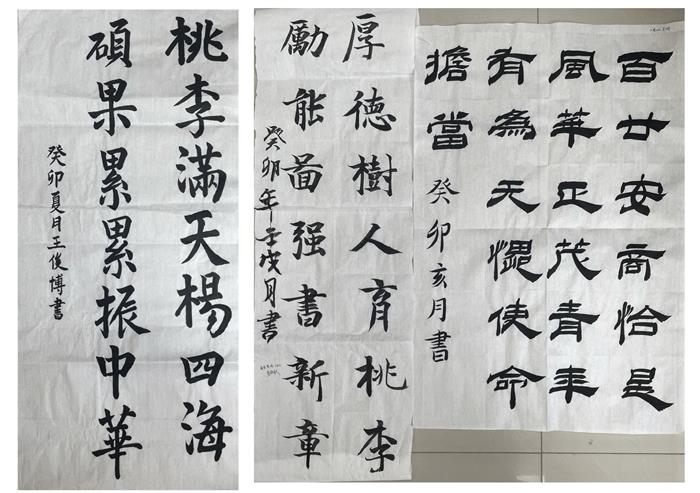 桃李滿天楊四海
碩果累累振中華
癸卯夏月王俊博書
厚德樹人育桃李
勵能啚强書新章
癸卯年壬戌月書
百廿安商恰是
風華正茂青年
有為无愧使命
擔當
癸卯亥月書